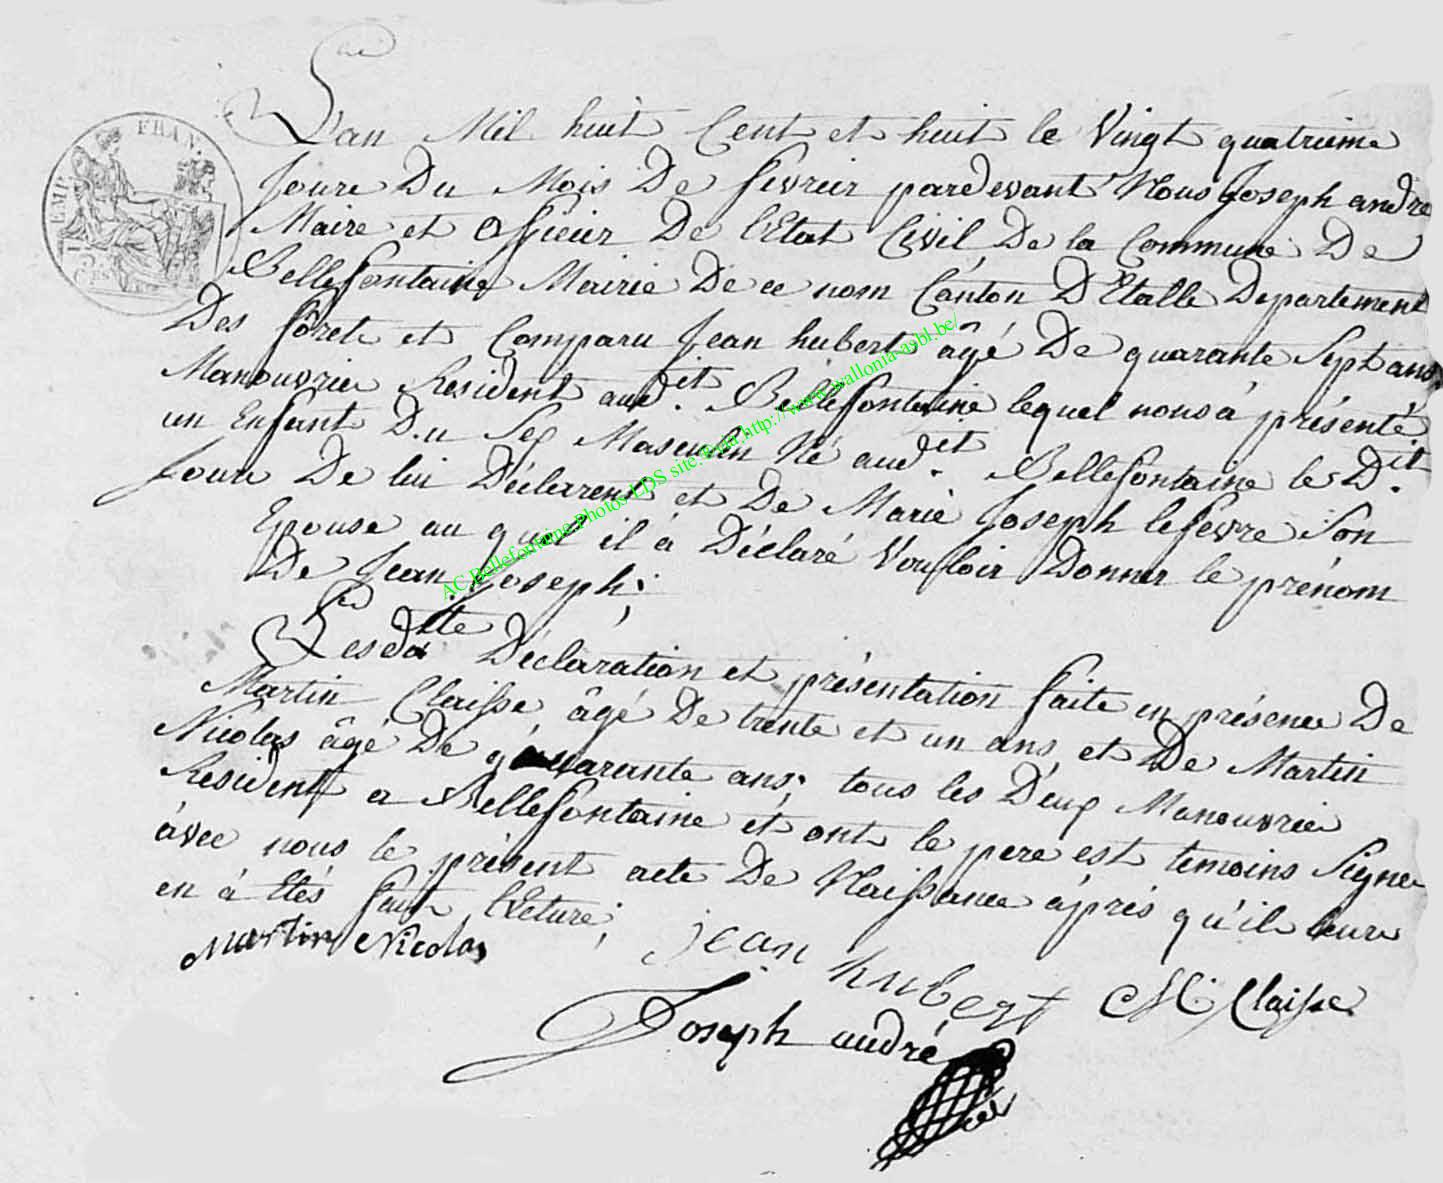 L'an Mil huit Cent et huit le Vingt quatrieme
Jour Du Mois De fevreir pardevant Nous Joseph andre
Maire et officier De l'Etat Civil De la Commune De
Bellefontaine Mairie De ce nom Canton D'Etalle Departement
Des forets et Comparu Jean hubert âgé De quarante Sept ans
Manouvrier Resident aud.it Bellefontaine lequel nous à présenté
un Enfant D.u Sex Masculin Né aud.it Bellefontaine le D.it
Jour De lui Déclarent et De Marie Joseph lefevre Son
Epouse au quel il à Déclaré Vouloir Donner le prénom
De Jean Joseph;
Lesdtte Déclaration et présentation faite en présence De
Martin Claisse âgé De trente et un ans et De Martin
Nicolas âgé De quarante ans; tous les Deux Manouvrier
Resident a Bellefontaine et ont le pere est temoins Signer
àvec nous le présent acte De Naissance àprés qu'il leure
en à Etés fait lecture;
Martin Nicolas
jean hubert
M. Claisse
Joseph andré
FRAN.
EMP.
AC Bellefontaine Photos LDS site: via http://www.wallonia-asbl.be/